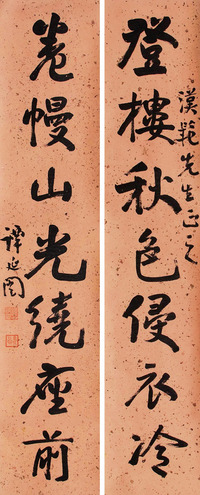 漠範先生正之
登樓秋色侵衣冷
卷幔山光繞座前
譚延闓